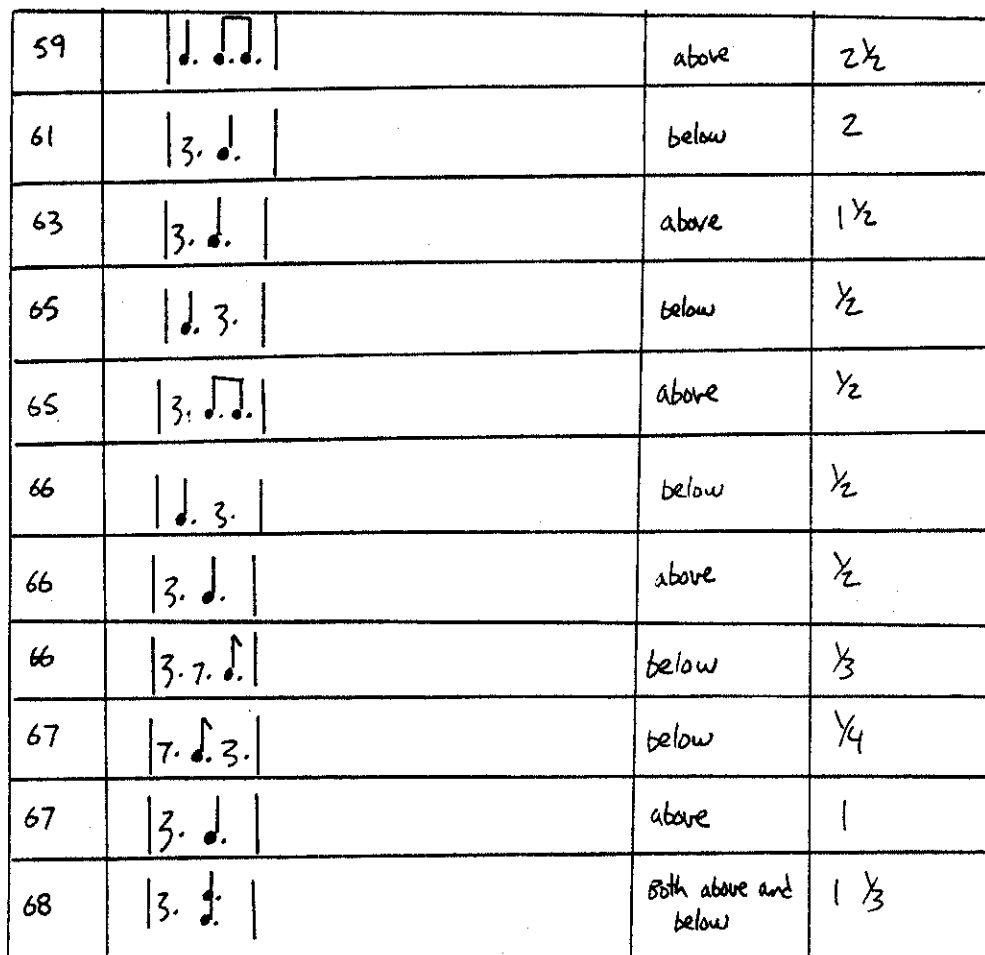 59 above 2 ½
61 below 2
63 above 1 ½
65 below ½
65 above ½
66 below ½
66 above ½
66 below ⅓
67 below ¼
67 above 1
68 Both above and below 1 ⅓